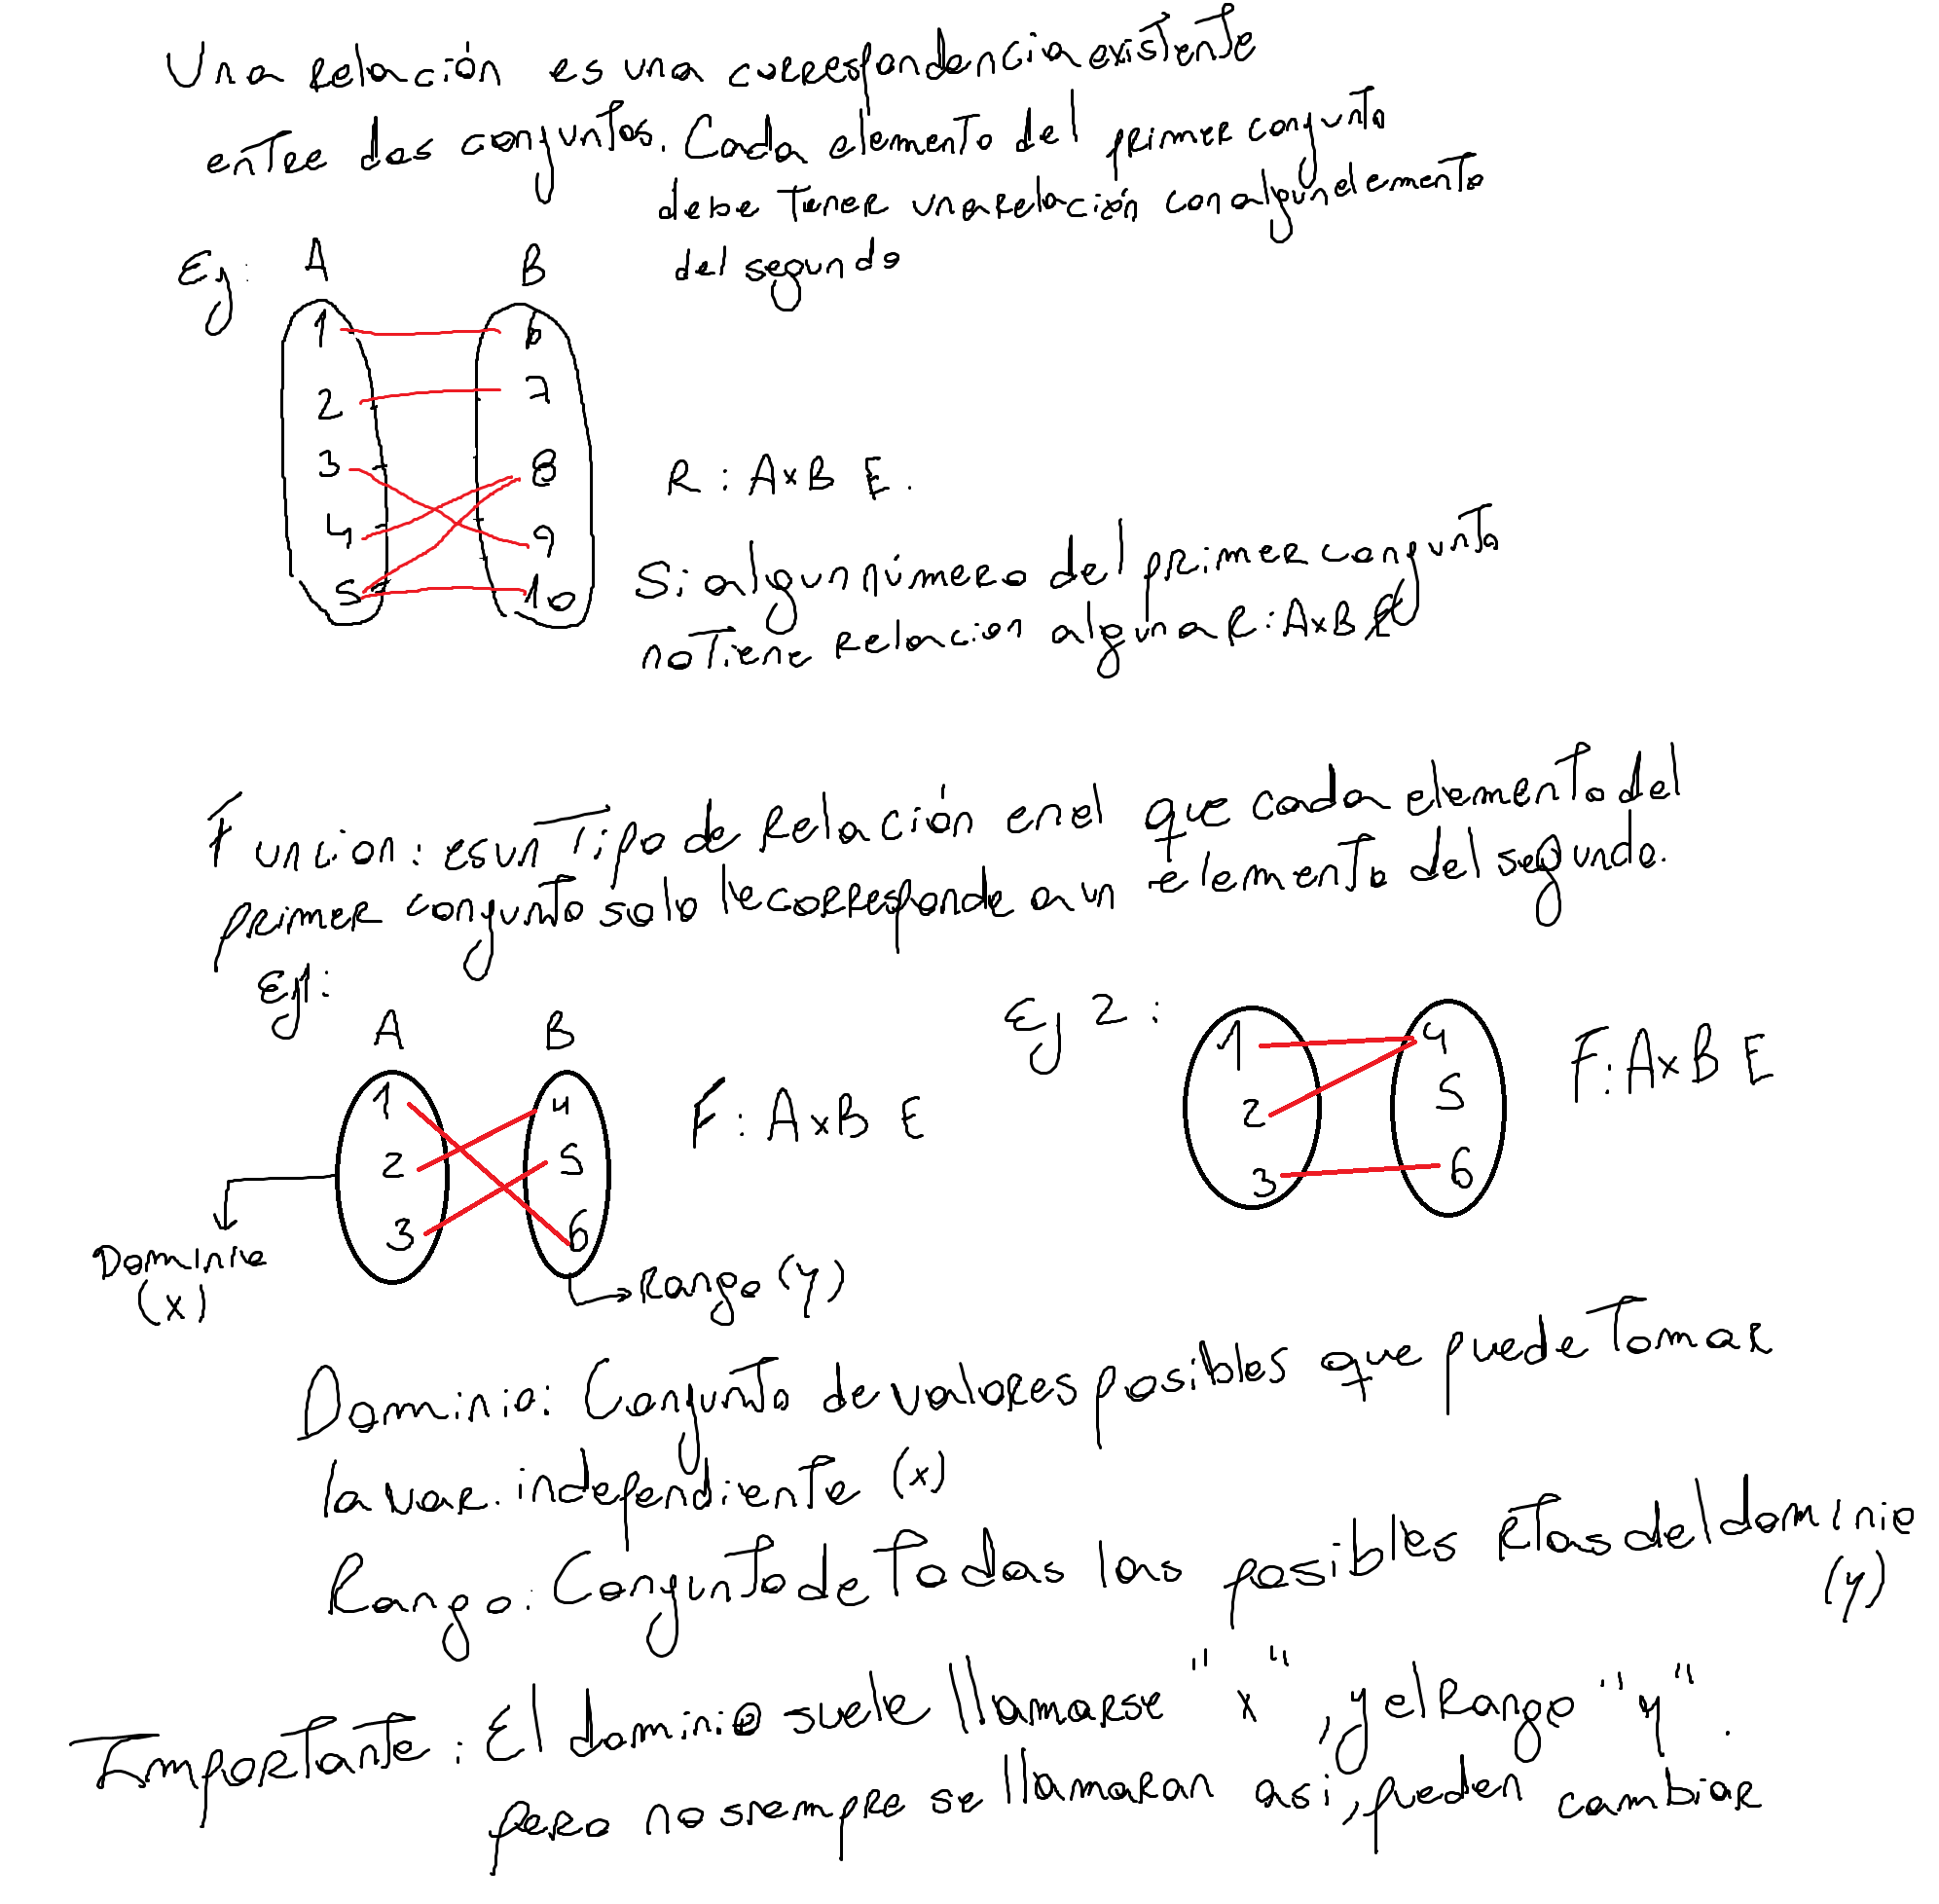 Una relación es una correspondencia existente
entre dos conjuntos. Cada elemento del primer conjunto
debe tener una relación con algun elemento
del segundo
Ej: A B
1 6
2 7
3 8
4 9
5 10
R : A×B E.
Si algun número del primer conjunto
no tiene relacion alguna R: A×B
Funcion: es un tipo de relación en el que cada elemento del
primer conjunto solo le corresponde a un elemento del segundo.
Ej1:
A B
1 4
2 5
3 6
F : A×B E
Dominio
(x)
Rango (y)
Ej 2 :
1 4
5
2
3 6
F: A×B E
Dominio: Conjunto de valores posibles que puede tomar
la var. independiente (x)
Rango: Conjunto de todas las posibles rtas del dominio
(y)
Importante: El dominio suele llamarse "x", y el rango "y".
pero no siempre se llamaran asi, pueden cambiar